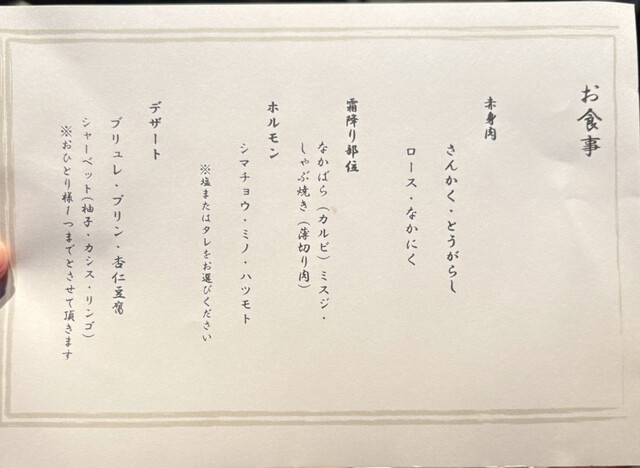 お食事
赤身肉
さんかく・とうがらし
ロース・なかにく
霜降り部位
なかばら（カルビ）ミスジ・
しゃぶ焼き（薄切り肉）
ホルモン
シマチョウ・ミノ・ハツモト
※塩またはタレをお選びください
デザート
ブリュレ・プリン・杏仁豆腐
シャーベット（柚子・カシス・リンゴ）
※おひとり様1つまでとさせて頂きます